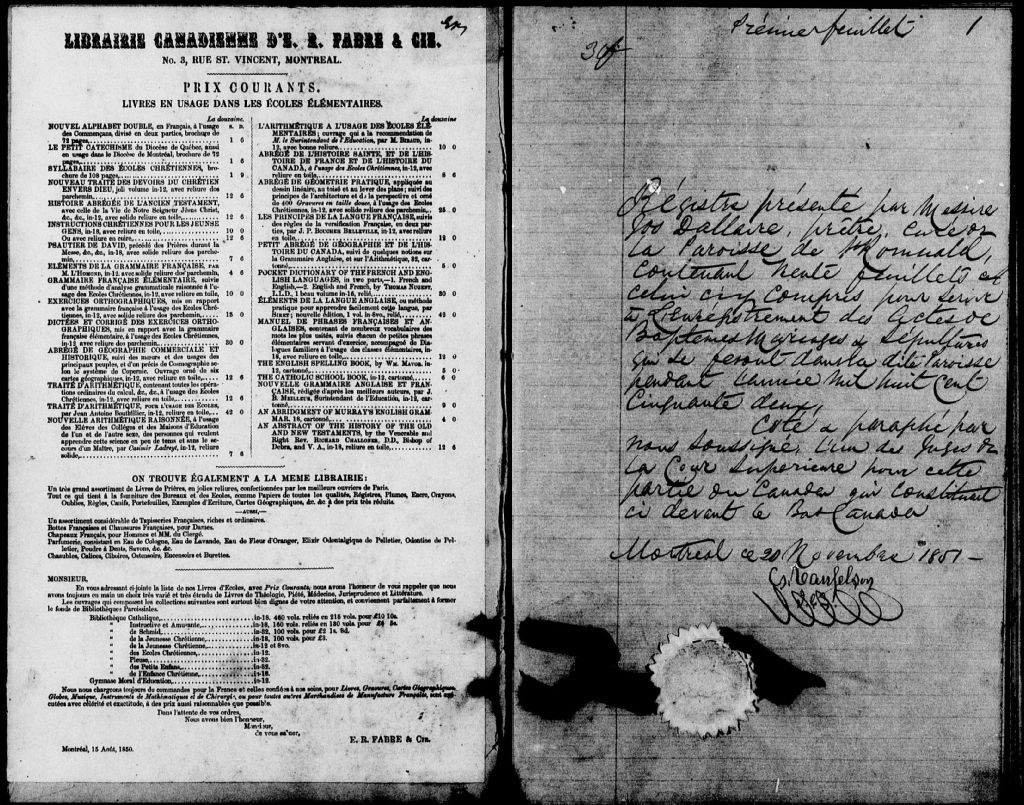 LIBRAIRIE CANADIENNE D'E. R. FABRE & CIE.
No. 3, RUE ST. VINCENT, MONTREAL.
PRIX COURANTS.
LIVRES EN USAGE DANS LES ÉCOLES ÉLÉMENTAIRES.
La douzaine.
S. D.
NOUVEL ALPHABET DOUBLE, en Français, à l'usage
des Commençans, divisé en deux parties, brochure de
72 pages, 1 6
LE PETIT CATECHISME du Diocèse de Québec, aussi
en usage dans le Diocèse de Montréal, brochure de 72
pages, 1 6
SYLLABAIRE DES ÉCOLES CHRÉTIENNES, bro-
chure de 108 pages, 1 9
NOUVEAU TRAITÉ DES DEVOIRS DU CHRÉTIEN
ENVERS DIEU, joli volume in-12, avec reliure des
parchemin, 12 6
HISTOIRE ABRÉGÉE DE L'ANCIEN TESTAMENT,
avec celle de la Vie de Notre Seigneur Jésus Christ,
&c., &c., in-12, avec solide reliure en toile, 12 6
INSTRUCTIONS CHRÉTIENNES POUR LES JEUNES
GENS, in-18, avec reliure en toile, 10 0
Ou avec reliure en cuire, 12 6
PSAUTIER DE DAVID, précédé des Prières durant la
Messe, &c., &c., in-18, avec solide reliure dos parche-
min, 7 6
ELÉMENTS DE LA GRAMMAIRE FRANÇAISE, PAR
M. L'HOMOND, in-12, avec solide reliure dos parchemin, 4 6
GRAMMAIRE FRANÇAISE ÉLÉMENTAIRE, suivie
d'une méthode d'analyse grammaticale raisonnée à l'u-
sage des Ecoles Chrétiennes, in-12, avec reliure en toile, 10 0
EXERCICES ORTHOGRAPHIQUES, mis en rapport
avec la grammaire française à l'usage des Ecoles Chré-
tiennes, in-12, avec solide reliure dos parchemin, 15 0
DICTÉES ET CORRIGÉ DES EXERCICES ORTHO-
GRAPHIQUES, mis en rapport avec la grammaire
française élémentaire, à l'usage des Ecoles Chrétiennes,
in-12, avec reliure dos parchemin, 30 0
ABRÉGÉ DE GÉOGRAPHIE COMMERCIALE ET
HISTORIQUE, suivi des mœurs et des usages des
principaux peuples, et d'un précis de Cosmographie se-
lon le système de Copernic. Ouvrage orné de six
cartes géographiques, in-12, avec reliure en toile, 12 6
TRAITÉ D'ARITHMÉTIQUE, contenant toutes les opéra-
tions ordinaires du calcul, &c., &c., à l'usage des Ecoles
Chrétiennes, in-12, avec solide reliure dos parchemin, 12 6
TRAITÉ D'ARITHMÉTIQUE, POUR L'USAGE DES ECOLES,
par Jean Antoine Bouthillier, in-12, reliure en toile, 42 0
NOUVELLE ARITHMÉTIQUE RAISONNÉE, à l'usage
des Elèves des Collèges et des Maisons d'Education
de l'un et de l'autre sexe, des personnes qui veulent
apprendre cette science en peu de tems et sans le se-
cours d'un Maître, par Casimir Ladreyt, in-12, reliure
solide, 7 6
La douzaine
L'ARITHMÉTIQUE A L'USAGE DES ÉCOLES ÉLÉ-
MENTAIRES; ouvrage qui a la recommendation de
M. le Surintendant de l'Education, par M. BIBAUD, in-
12, avec bonne reliure, 10 0
ABRÉGÉ DE L'HISTOIRE SAINTE, ET DE L'HIS-
TOIRE DE FRANCE ET DE L'HISTOIRE DU
CANADA, à l'usage des Ecoles Chrétiennes, in-12, avec
reliure en toile, 8 6
ABRÉGÉ DE GÉOMÉTRIE PRATIQUE, appliquée au
dessin linéaire, au toisé et au lever des plans; suivi des
principes de l'architecture et de la perspective et orné
de 400 Gravures en taille douce, à l'usage des Ecoles
Chrétiennes, in-12, avec solide reliure dos parchemin, 25 0
LES PRINCIPES DE LA LANGUE FRANÇAISE, suivis
des règles de la versification Française, en deux par-
ties, par J. P. BOUCHER BELLEVILLE, in-12, avec reliure
en toile, 12 6
PETIT ABRÉGÉ DE GÉOGRAPHIE ET DE L'HIS-
TOIRE DU CANADA, suivi de quelques notions sur
la Grammaire Anglaise, et sur l'Arithmétique, 82, car-
tonné, 5 0
POCKET DICTIONARY OF THE FRENCH AND EN-
GLISH LANGUAGES, in two parts—1. French and
English,—2. English and French, by THOMAS NUGENT,
L.L.D., 1 beau volume in-18, relié, 30 0
ÉLÉMENTS DE LA LANGUE ANGLAISE, ou méthode
pratique pour apprendre facilement cette langue, par
SIRET; nouvelle édition, 1 vol. in-8vo, relié, 42 0
MANUEL DE PHRASES FRANÇAISES ET AN-
GLAISES, contenant de nombreux vocabulaires des
mots les plus usités, suivis chacun de petites phrases
élémentaires servant d'exercice, accompagné de Dia-
logues familiers à l'usage des classes élémentaires, in-
18, avec reliure en toile, 12 0
THE ENGLISH SPELLING BOOK, by WM. MAVOR, in-
12, cartonné, 5 0
THE CATHOLIC SCHOOL BOOK, in-12, cartonné, 6 0
NOUVELLE GRAMMAIRE ANGLAISE ET FRAN-
ÇAISE, rédigée d'après les meilleurs auteurs, par J.
B. MEILLEUR, Surintendant de l'Education, in-12, car-
tonné, 9 0
AN ABRIDGMENT OF MURRAY'S ENGLISH GRAM-
MAR, 18, cartonné, 4 0
AN ABSTRACT OF THE HISTORY OF THE OLD
AND NEW TESTAMENTS, by the Venerable and
Right Rev. RICHARD CHALLONER, D.D., Bishop of
Debra, and V. A., in-18, reliure en toile, 12 6
ON TROUVE ÉGALEMENT A LA MEME LIBRAIRIE:
Un très grand assortiment de Livres de Prières, en jolies reliures, confectionnées par les meilleurs ouvriers de Paris.
Tout ce qui tient à la fourniture des Bureaux et des Ecoles, comme Papiers de toutes les qualités, Régistres, Plumes, Encre, Crayons,
Oublies, Règles, Canifs, Portefeuilles, Exemples d'Ecriture, Cartes Géographiques, &c. &c. à des prix très réduits.
—AUSSI,—
Un assortiment considérable de Tapisseries Françaises, riches et ordinaires.
Bottes Françaises et Chaussures Françaises, pour Dames.
Chapeaux Français, pour Hommes et MM. du Clergé.
Parfumerie, consistant en Eau de Cologne, Eau de Lavande, Eau de Fleur d'Oranger, Elixir Odontalgique de Pelletier, Odontine de Pel-
letier, Poudre à Dents, Savons, &c. &c.
Chasubles, Calices, Ciboires, Ostensoirs, Encensoirs et Burettes.
MONSIEUR,
En vous adressant ci-jointe la liste de nos Livres d'Ecoles, avec Prix Courants; nous avons l'honneur de vous rappeler que nous
avons toujours en main un choix très varié et très étendu de Livres de Théologie, Piété, Médecine, Jurisprudence et Littérature.
Les ouvrages qui composent les collections suivantes sont surtout bien dignes de votre attention, et conviennent parfaitement à former
le fonds de Bibliothèques Paroissiales.
Bibliothèque Catholique, in-18. 460 vols. reliés en 215 vols. pour £10 10s.
" Instructive et Amusante, in-18, 160 vols. reliés en 130 vols. pour £4 5s.
" de Schmid, in-32, 100 vols. pour £2 1s. 8d.
" de la Jeunesse Chrétienne, in-18, 100 vols. pour £3.
" de la Jeunesse Chrétienne, in-12 et 8vo.
" des Ecoles Chrétiennes, in-12.
" Pieuse, in-32.
" des Petits Enfans, in-32.
" de l'Enfance Chrétienne, in-18.
Gymnase Moral d'Education, in-12.
Nous nous chargeons toujours de commandes pour la France et celles confiées à nos soins, pour Livres, Gravures, Cartes Géographiques,
Globes, Musique, Instruments de Mathématiques et de Chirurgie, ou pour toutes autres Marchandises de Manufacture Française, sont exé-
cutées avec célérité et exactitude, à des prix aussi raisonnables que possible.
Dans l'attente de vos ordres,
Nous avons bien l'honneur,
Monsieur,
de vous saluer,
E. R. FABRE & CIE.
Montréal, 15 Août, 1850.
Prémier feuillet 1
30f
Régistre présenté par Messire
Jos Dallaire prêtre, Curé de
la Paroisse de St Romuald,
contenant trente feuillets et
celui ci y compris pour servir
à l'Enregistrement des Actes de
Baptêmes Mariages & Sépultures
qui se feront dans la dite Paroisse
pendant l'année Mil huit Cent
Cinquante deux,
Coté & paraphé par
nous soussigné, l'un des Juges de
la Cour Supérieure pour cette
partie du Canada qui Constituait
ci devant le Bas Canada
Montréal ce 20 Novembre 1851 –